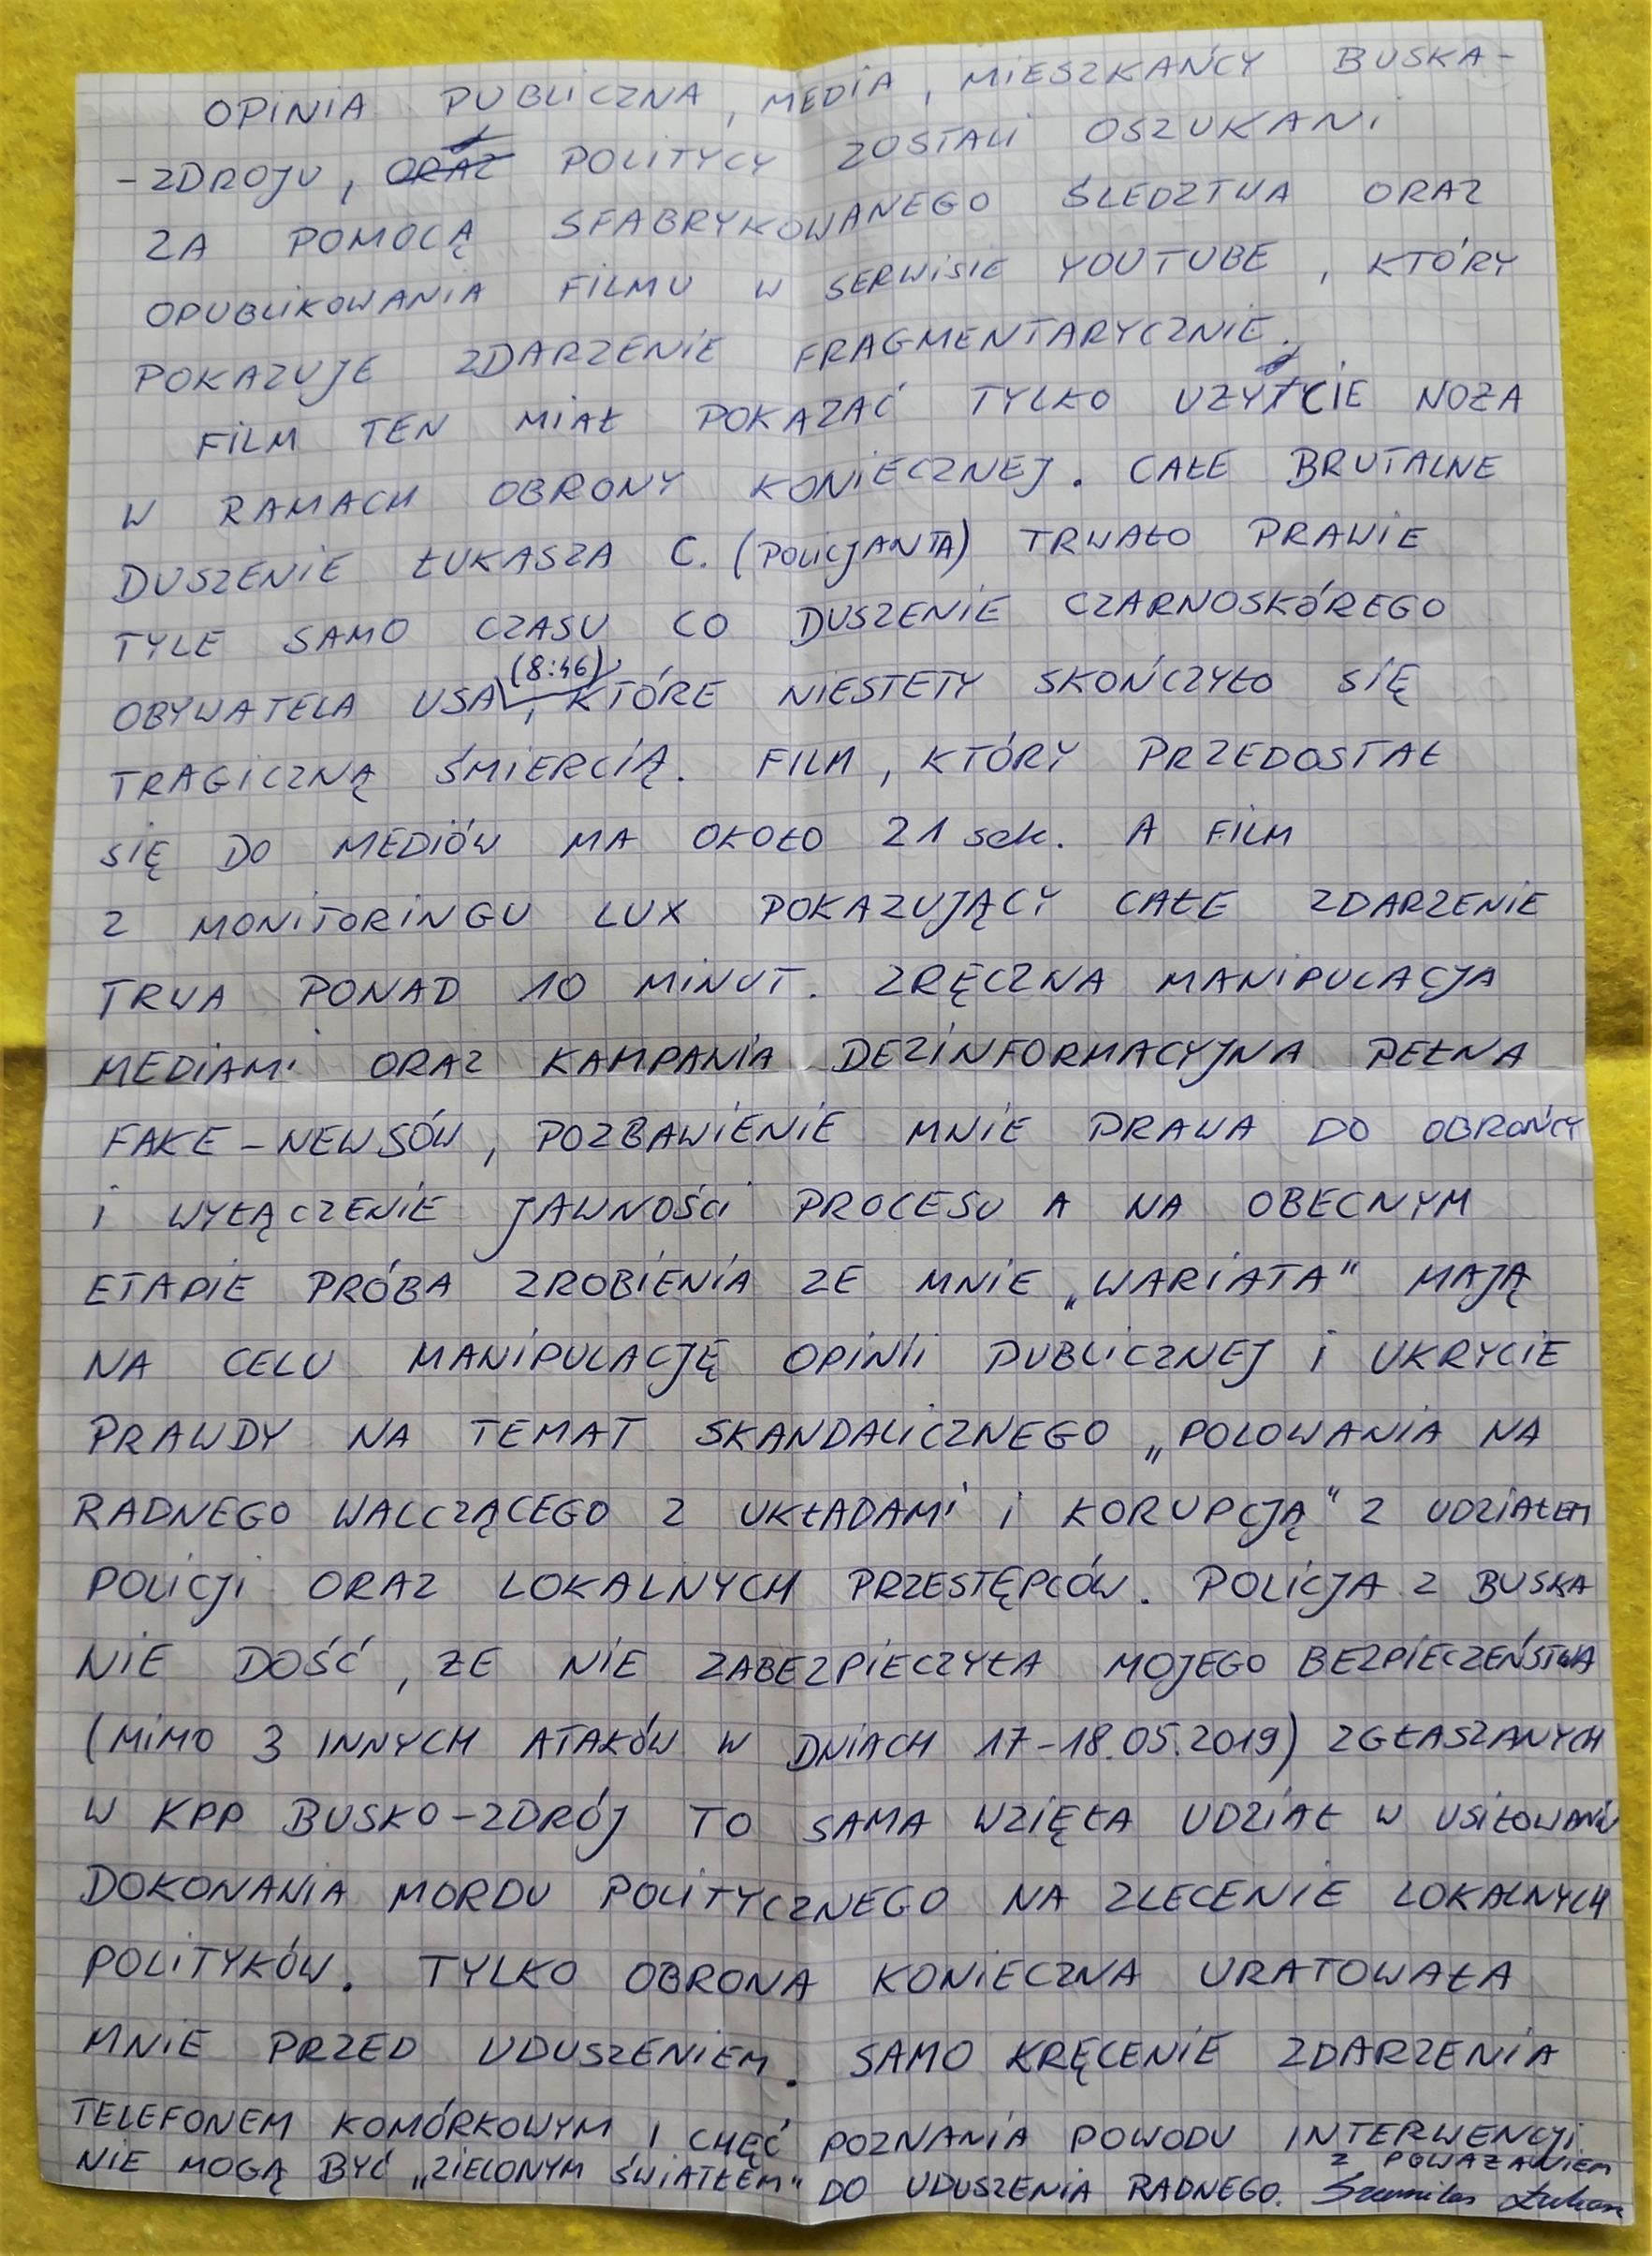 OPINIA PUBLICZNA, MEDIA, MIESZKAŃCY BUSKA-
-ZDROJU, ORAZ POLITYCY ZOSTALI OSZUKANI
ZA POMOCĄ SFABRYKOWANEGO ŚLEDZTWA ORAZ
OPUBLIKOWANIA FILMU W SERWISIE YOUTUBE, KTÓRY
POKAZUJE ZDARZENIE FRAGMENTARYCZNIE.
FILM TEN MIAŁ POKAZAĆ TYLKO UŻYCIE NOŻA
W RAMACH OBRONY KONIECZNEJ. CAŁE BRUTALNE
DUSZENIE ŁUKASZA C. (POLICJANTA) TRWAŁO PRAWIE
TYLE SAMO CZASU CO DUSZENIE CZARNOSKÓREGO
OBYWATELA USA (8:46), KTÓRE NIESTETY SKOŃCZYŁO SIĘ
TRAGICZNĄ ŚMIERCIĄ. FILM, KTÓRY PRZEDOSTAŁ
SIĘ DO MEDIÓW MA OKOŁO 21 sek. A FILM
Z MONITORINGU LUX POKAZUJĄCY CAŁE ZDARZENIE
TRWA PONAD 10 MINUT. ZRĘCZNA MANIPULACJA
MEDIAMI ORAZ KAMPANIA DEZINFORMACYJNA PEŁNA
FAKE-NEWSÓW, POZBAWIENIE MNIE PRAWA DO OBROŃCY
I WYŁĄCZENIE JAWNOŚCI PROCESU A NA OBECNYM
ETAPIE PRÓBA ZROBIENIA ZE MNIE „WARIATA" MAJĄ
NA CELU MANIPULACJĘ OPINII PUBLICZNEJ I UKRYCIE
PRAWDY NA TEMAT SKANDALICZNEGO „POLOWANIA NA
RADNEGO WALCZĄCEGO Z UKŁADAMI I KORUPCJĄ" Z UDZIAŁEM
POLICJI ORAZ LOKALNYCH PRZESTĘPCÓW. POLICJA Z BUSKA
NIE DOŚĆ, ŻE NIE ZABEZPIECZYŁA MOJEGO BEZPIECZEŃSTWA
(MIMO 3 INNYCH ATAKÓW W DNIACH 17-18.05.2019) ZGŁASZANYCH
W KPP BUSKO-ZDRÓJ TO SAMA WZIĘŁA UDZIAŁ W USIŁOWANIU
DOKONANIA MORDU POLITYCZNEGO NA ZLECENIE LOKALNYCH
POLITYKÓW. TYLKO OBRONA KONIECZNA URATOWAŁA
MNIE PRZED UDUSZENIEM. SAMO KRĘCENIE ZDARZENIA
TELEFONEM KOMÓRKOWYM I CHĘĆ POZNANIA POWODU INTERWENCJI
NIE MOGĄ BYĆ „ZIELONYM ŚWIATŁEM" DO UDUSZENIA RADNEGO.
Z POWAŻANIEM